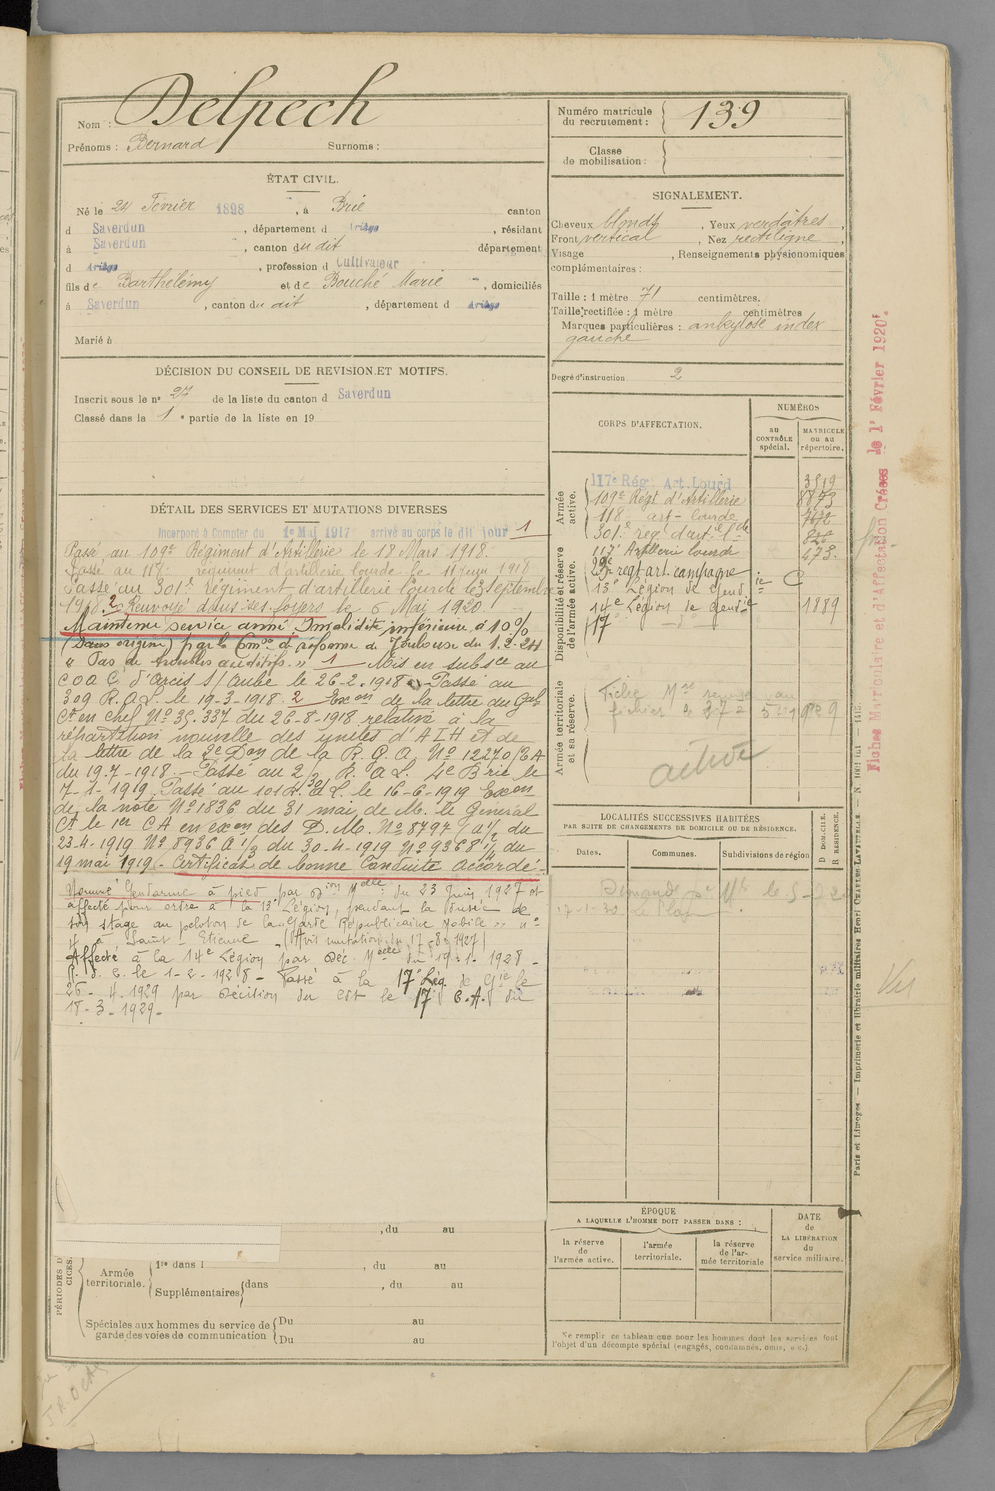 Nom : Delpech
Prénoms : Bernard Surnoms :
ÉTAT CIVIL.
Né le 24 Février 1898, à Brie canton
d Saverdun, département d Ariège, résidant
à Saverdun, canton du dit département
d Ariège, profession d Cultivateur
fils de Barthélémy et de Bouché Marie, domiciliés
à Saverdun, canton du dit, département d Ariège
Marié à
DÉCISION DU CONSEIL DE REVISION ET MOTIFS.
Inscrit sous le n° 27 de la liste du canton d Saverdun
Classé dans la 1e partie de la liste en 19
DÉTAIL DES SERVICES ET MUTATIONS DIVERSES
Incorporé à Compter du 1e Mai 1917 arrivé au corps le dit jour 1
Passé au 109e Régiment d'Artillerie le 18 Mars 1918.
Passé au 118e régiment d'artillerie lourde le 11 juin 1918
Passé au 301e Régiment d'artillerie lourde le 3 Septembre
1918. 2 Renvoyé dans ses foyers le 6 Mai 1920.
Maintenu service armé Invalidité inférieure à 10%
(Sans origine) par la Com.on de réforme de Toulouse du 1.2.21
"Pas de troubles auditifs." 1 Mis en subsce au
C O A C d'Arcis s/ Aube le 26-2-1918 Passé au
309 R.A.L. le 19-3-1918. 2 Exon de la lettre du Gal
Ct en chef No 35.337 du 26-8-1918 relative à la
répartition nouvelle des unités d'A L H et de
la lettre de la 2e Don de la R.G.A. No 12270/EA
du 19.7-1918. Passé au 2/301 R.A.L. 4e Brie le
7-1-1919 Passé au 101 R.A.L. le 16-6-1919 Exon
de la note No 1836 du 31 mai de M. le Général
Ct le 1er CA en exon des D.M. No 8797/a 1/2 du
23-4-1919 No 8936 A 1/2 du 30-4-1919 No 9368 1/1 du
19 mai 1919. Certificat de bonne Conduite accordé.
Nommé Gendarme à pied par Dion Melle du 23 Juin 1927 et
affecté pour ordre à la 13e Légion, pendant la durée de
son stage au peloton de la Garde Républicaine Mobile n°
4 à Saint-Etienne (Avis mutation du 17-8-1927)
Affecté à la 14e Légion par Déc. Melle du 19-1-1928 -
le 1-2-1928 - Passé à la 17e Lég. de Gie le
26-4-1929 par Décision du Ct le 17 C.A. du
18-3-1929-
PÉRIODES D
CICES.
, du au
Armée territoriale. 1re dans l , du au
Supplémentaires dans , du au
Spéciales aux hommes du service de garde des voies de communication Du au
Du au
Numéro matricule du recrutement : 139
Classe de mobilisation :
SIGNALEMENT.
Cheveux blonds, Yeux verdâtres,
Front vertical, Nez rectiligne,
Visage , Renseignements physionomiques
complémentaires :
Taille : 1 mètre 71 centimètres.
Taille rectifiée : 1 mètre centimètres
Marques particulières : ankylose index
gauche
Degré d'instruction. 2
CORPS D'AFFECTATION.
NUMÉROS
au CONTRÔLE spécial.
MATRICULE ou au répertoire.
Armée active.
117e Rég. Art. Lourd 3519
109e Régt d'Artillerie 8873
118 art- lourde
301e reg. d'art. lde
117e Artillerie lourde 473.
Disponibilité et réserve de l'armée active.
regt art. campagne
13e Légion de Gend.ie C
14e Légion de Gend.ie 1889
17 - d° -
Armée territoriale et sa réserve.
Fiche Mle remise au
fichier
active
LOCALITÉS SUCCESSIVES HABITÉES
PAR SUITE DE CHANGEMENTS DE DOMICILE OU DE RÉSIDENCE.
Dates. Communes. Subdivisions de région
D DOMICILE. R RÉSIDENCE.
Demande
ÉPOQUE
A LAQUELLE L'HOMME DOIT PASSER DANS :
la réserve de l'armée active.
l'armée territoriale.
la réserve de l'armée territoriale
DATE de LA LIBÉRATION du service militaire.
Ne remplir ce tableau que pour les hommes dont les services font
l'objet d'un décompte spécial (engagés, condamnés, omis, etc.)
Paris et Limoges — Imprimerie et librairie militaires Henri CHARLES-LAVAUZELLE.
Fiches Matriculaire et d'Affectation Créées le 1r Février 1920.
Vu